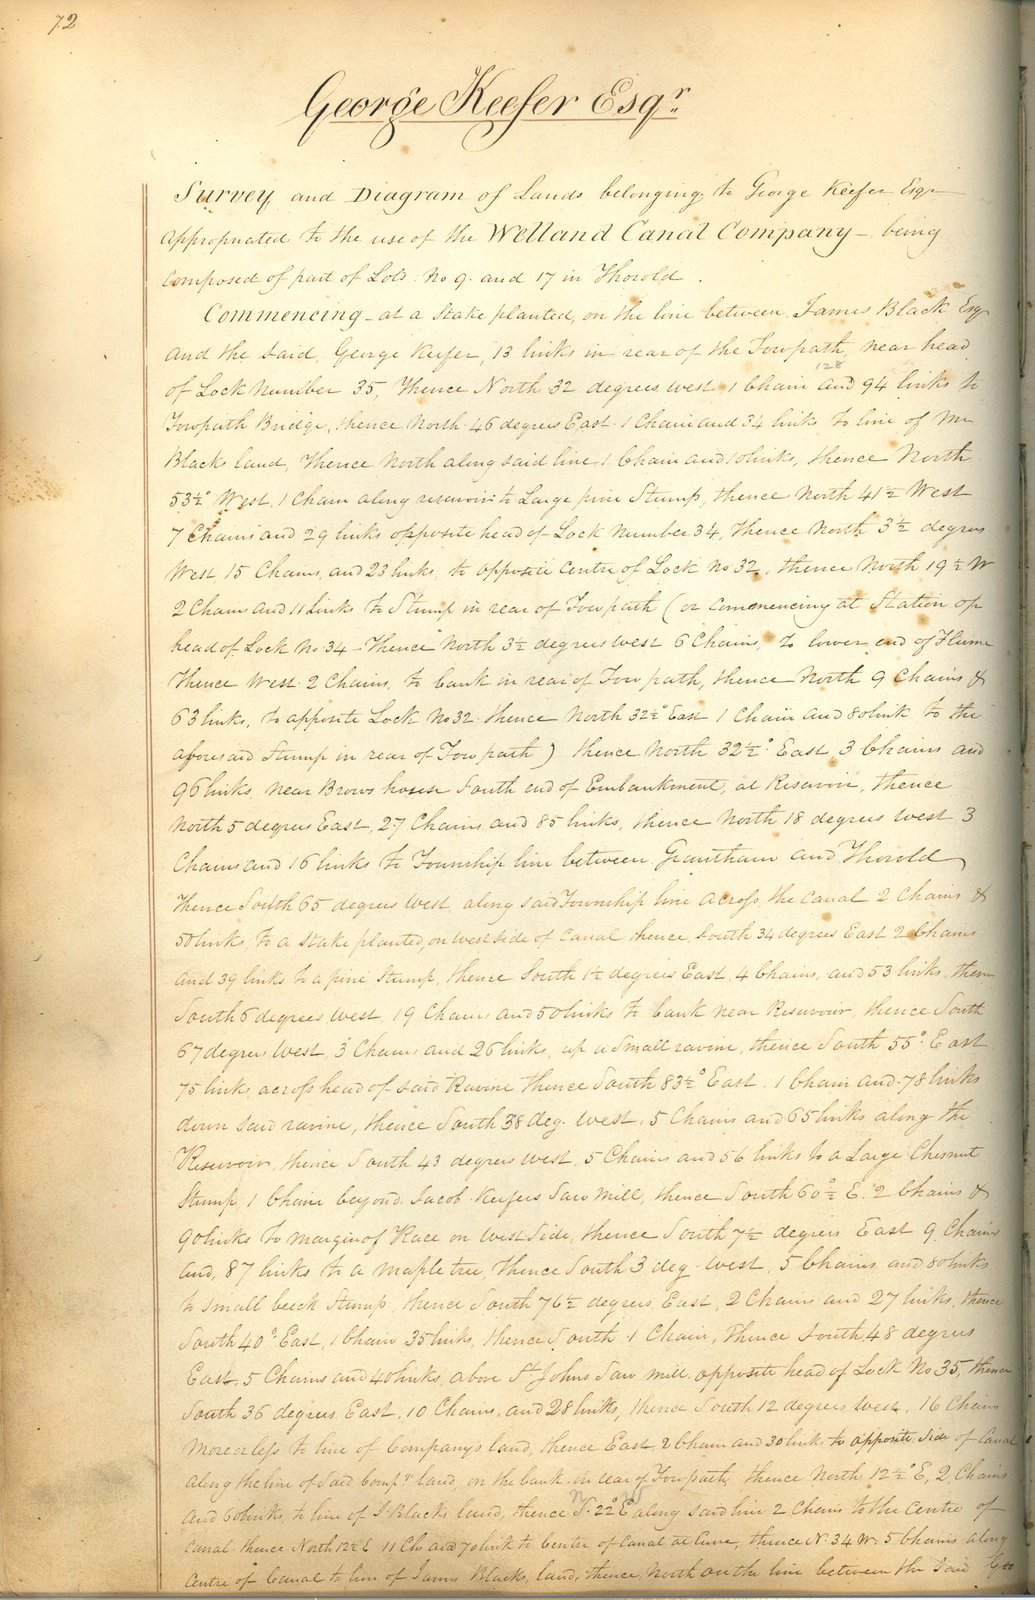 72
George Keefer Esqr
Survey and Diagram of Lands belonging to George Keefer Esqr
appropriated to the use of the Welland Canal Company – being
composed of part of Lots No 9 and 17 in Thorold.
Commencing – at a Stake planted, on the line between James Black Esqr
and the said, George Keefer, 13 links in rear of the Towpath, near head
128
of Lock number 35, Thence North 32 degrees west 1 Chain and 94 links to
Towpath Bridge, thence North 46 degrees East 1 Chain and 34 links to line of Mr
Blacks land, Thence North along said line 1 Chain and 10 links, thence North
53½° West, 1 Chain along reservoir to Large pine Stump, thence North 41½ West
7 Chains and 29 links opposite head of Lock Number 34, Thence North 3½ degrees
West, 15 Chains, and 23 links, to opposite centre of Lock No 32, thence North 19½ W
2 Chains and 11 Links to Stump in rear of Towpath (or commencing at Station op
head of Lock No 34 – Thence North 3½ degrees west 6 Chains, to lower end of Flume
Thence West 2 Chains, to bank in rear of Tow path, thence North 9 Chains &
63 links, to opposite Lock No 32 thence North 32½° East 1 Chain and 80 link to the
aforesaid Stump in rear of Tow path) thence North 32½° East, 3 Chains and
96 links, near Brows house South end of Embankment, at Reservoir, thence
North 5 degrees East, 27 Chains and 85 links, thence North 18 degrees west 3
Chains and 16 links to Township line between Grantham and Thorold
Thence South 65 degrees West, along said Township line across the Canal 2 Chains &
50 links, to a Stake planted, on west side of Canal thence South 34 degrees East 2 Chains
and 39 links to a pine Stump, thence South 1½ degrees East, 4 Chains, and 53 links, then
South 6 degrees west, 19 Chains and 50 links to bank near Reservoir, thence South
67 degrees West, 3 Chains and 26 links, up a Small ravine, thence South 55° East
75 links across head of said Ravine thence South 83½° East 1 Chain and 78 links
down said ravine, thence South 38 deg. West, 5 Chains and 65 links along the
Reservoir, thence South 43 degrees west, 5 Chains and 56 links to a Large Chesnut
Stump, 1 Chain beyond Jacob Keefers Saw Mill, thence South 60½° E. 2 Chains &
90 links to margin of Race on West Side, thence South 7½ degrees East 9 Chains
and, 87 links to a maple tree, thence South 3 deg. west, 5 Chains and 80 links
to small beech Stump, thence South 76½ degrees East, 2 Chains and 27 links, thence
South 40° East, 1 Chain 35 links, thence South 1 Chain, Thence South, 48 degrees
East, 5 Chains and 40 links, above St Johns Saw mill opposite head of Lock No 35, thence
South 36 degrees East, 10 Chains, and 28 links, thence South 12 degrees west, 16 Chains
more or less to line of Company's land, thence East, 2 Chain and 30 links to opposite side of Canal
along the line of Said Compys land, on the bank in rear of Towpath, thence North 12½° E, 2 Chains
n W
and 60 links, to line of J. Blacks land, thence S. 22° E along said line 2 Chains to the Centre of
Canal thence North 12½ E 11 Chs and 70 link to Centre of Canal at Curve, thence N. 34 W. 5 Chains along
Centre of Canal to line of James Blacks, land, thence, North on the line between the Said Geo